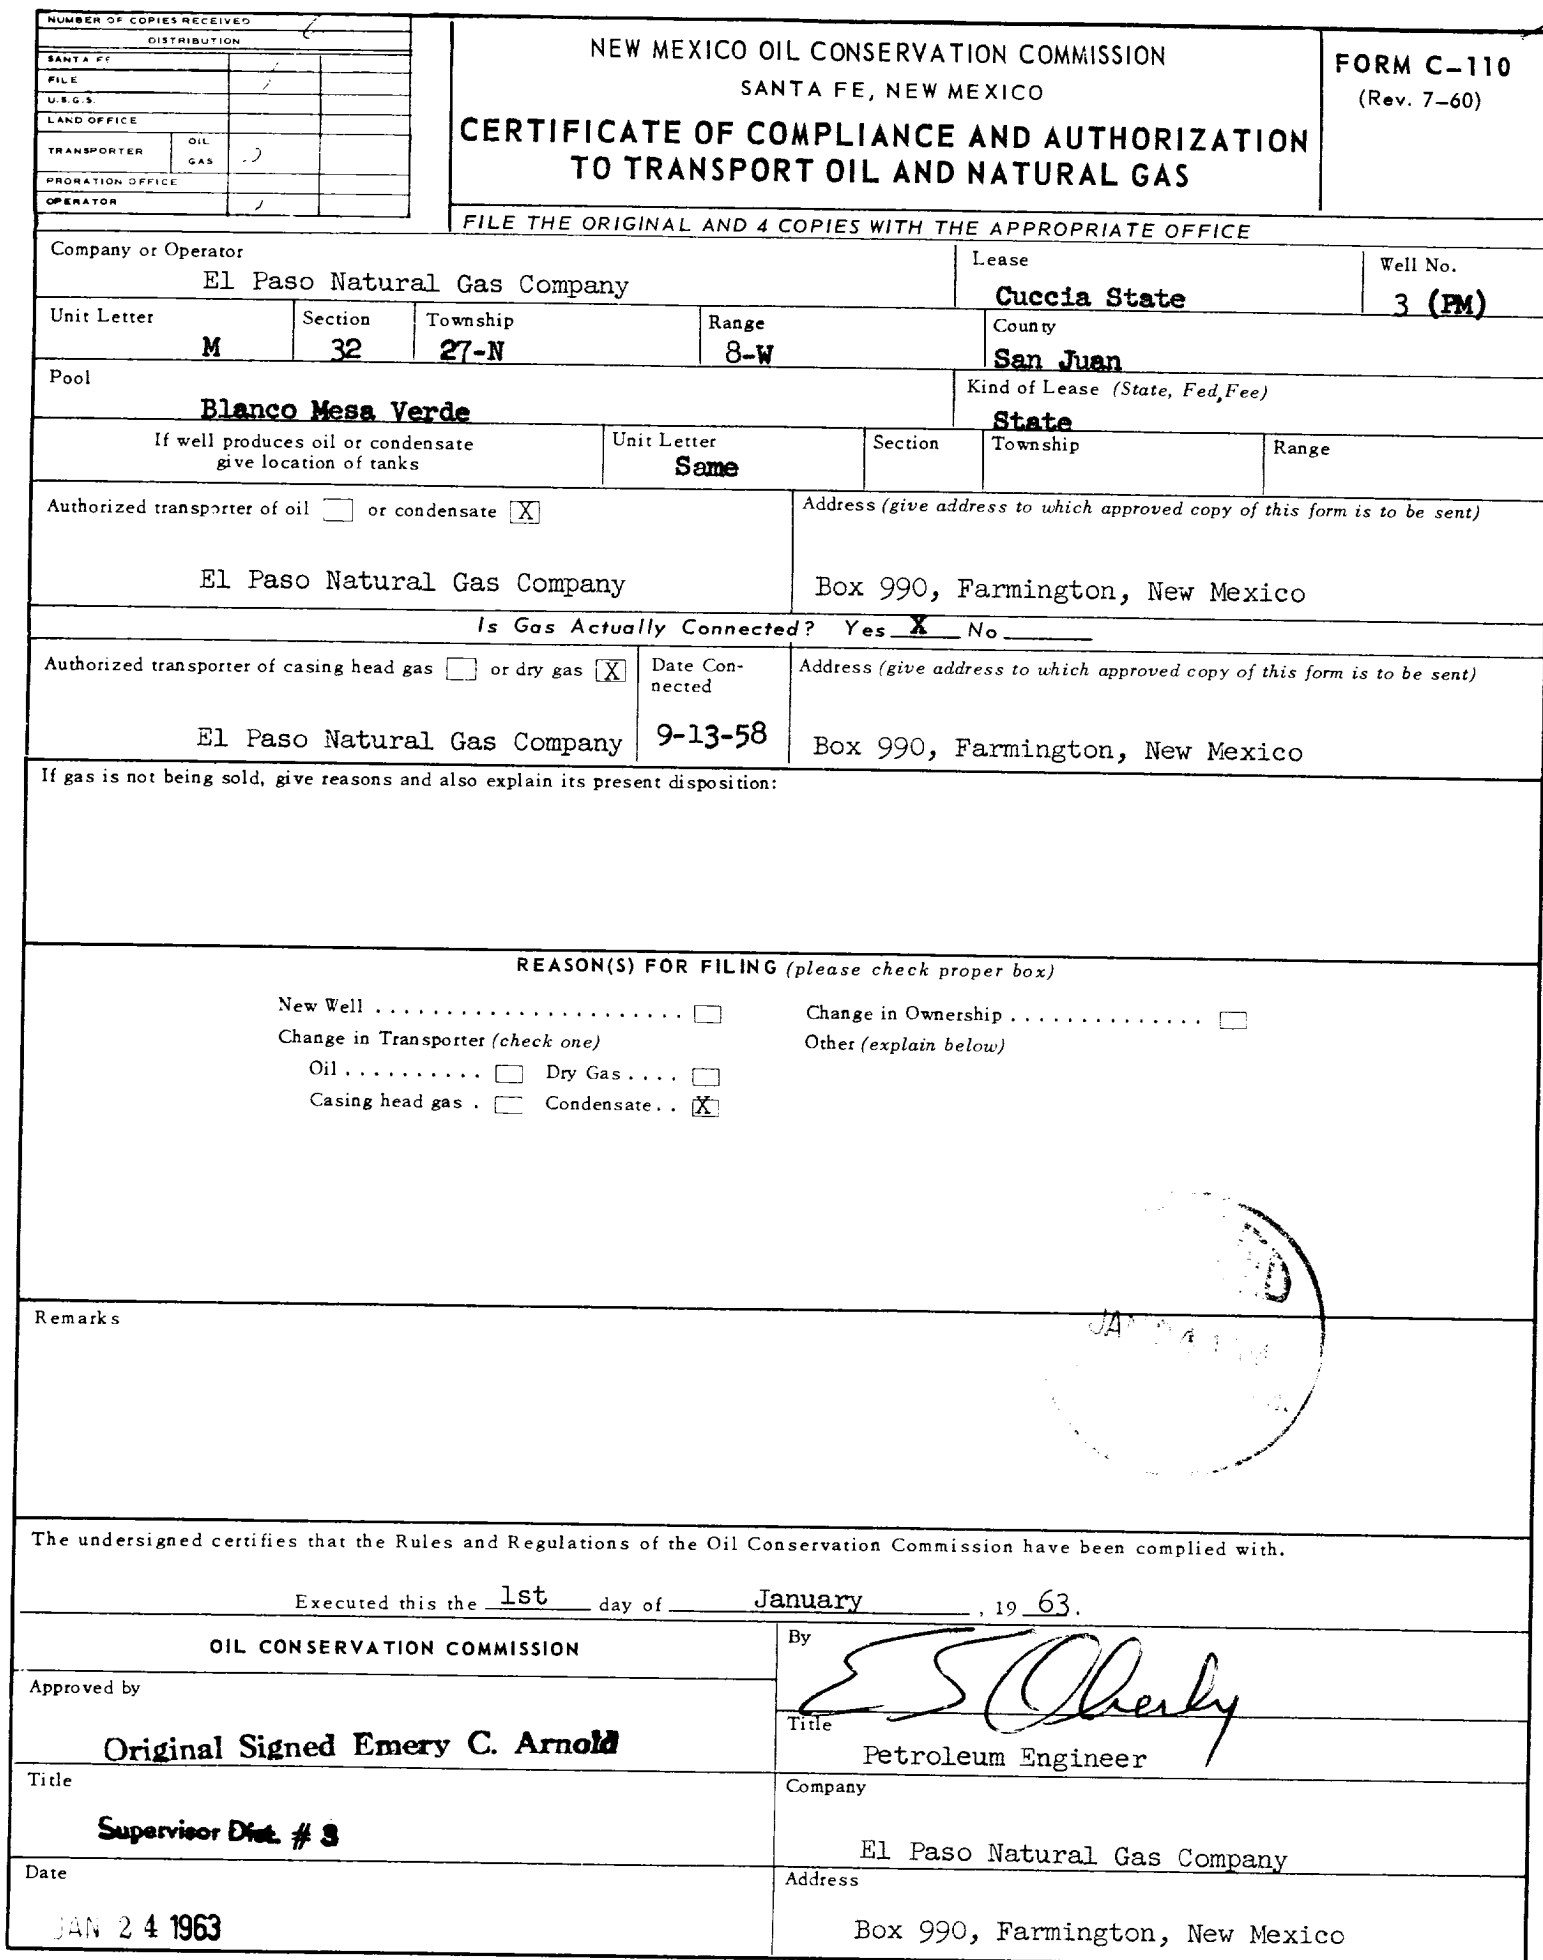 NUMBER OF COPIES RECEIVED
DISTRIBUTION
SANTA FE
FILE
U.S.G.S.
LAND OFFICE
TRANSPORTER OIL
GAS
PRORATION OFFICE
OPERATOR
NEW MEXICO OIL CONSERVATION COMMISSION
SANTA FE, NEW MEXICO
CERTIFICATE OF COMPLIANCE AND AUTHORIZATION
TO TRANSPORT OIL AND NATURAL GAS
FORM C-110
(Rev. 7-60)
FILE THE ORIGINAL AND 4 COPIES WITH THE APPROPRIATE OFFICE
Company or Operator
El Paso Natural Gas Company
Lease
Cuccia State
Well No.
3 (PM)
Unit Letter
M
Section
32
Township
27-N
Range
8-W
County
San Juan
Pool
Blanco Mesa Verde
Kind of Lease (State, Fed, Fee)
State
If well produces oil or condensate
give location of tanks
Unit Letter
Same
Section
Township
Range
Authorized transporter of oil or condensate X
El Paso Natural Gas Company
Address (give address to which approved copy of this form is to be sent)
Box 990, Farmington, New Mexico
Is Gas Actually Connected? Yes X No
Authorized transporter of casing head gas or dry gas X
El Paso Natural Gas Company
Date Con-
nected
9-13-58
Address (give address to which approved copy of this form is to be sent)
Box 990, Farmington, New Mexico
If gas is not being sold, give reasons and also explain its present disposition:
REASON(S) FOR FILING (please check proper box)
New Well . . . . . . . . . . . . . . . . . . . . . .
Change in Ownership . . . . . . . . . . . . . .
Change in Transporter (check one)
Other (explain below)
Oil . . . . . . . . . . Dry Gas . . . .
Casing head gas . Condensate . . X
Remarks
The undersigned certifies that the Rules and Regulations of the Oil Conservation Commission have been complied with.
Executed this the 1st day of January , 19 63.
OIL CONSERVATION COMMISSION
Approved by
Original Signed Emery C. Arnold
Title
Supervisor Dist. # 3
Date
JAN 24 1963
By
E S Oberly
Title
Petroleum Engineer
Company
El Paso Natural Gas Company
Address
Box 990, Farmington, New Mexico